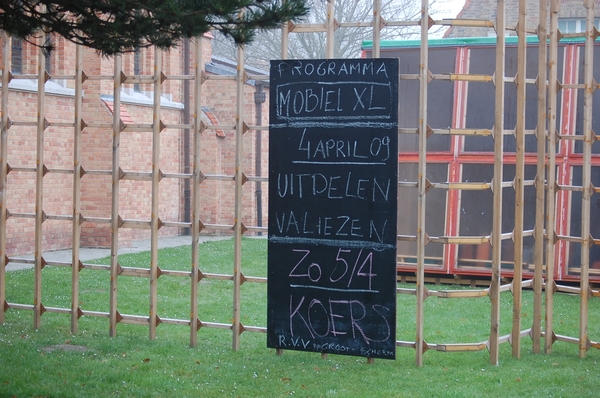 PROGRAMMA
MOBIEL XL
4 APRIL 09
UITDELEN
VALIEZEN
Zo 5/4
KOERS
R.V.V OP GROOT-SCHERM